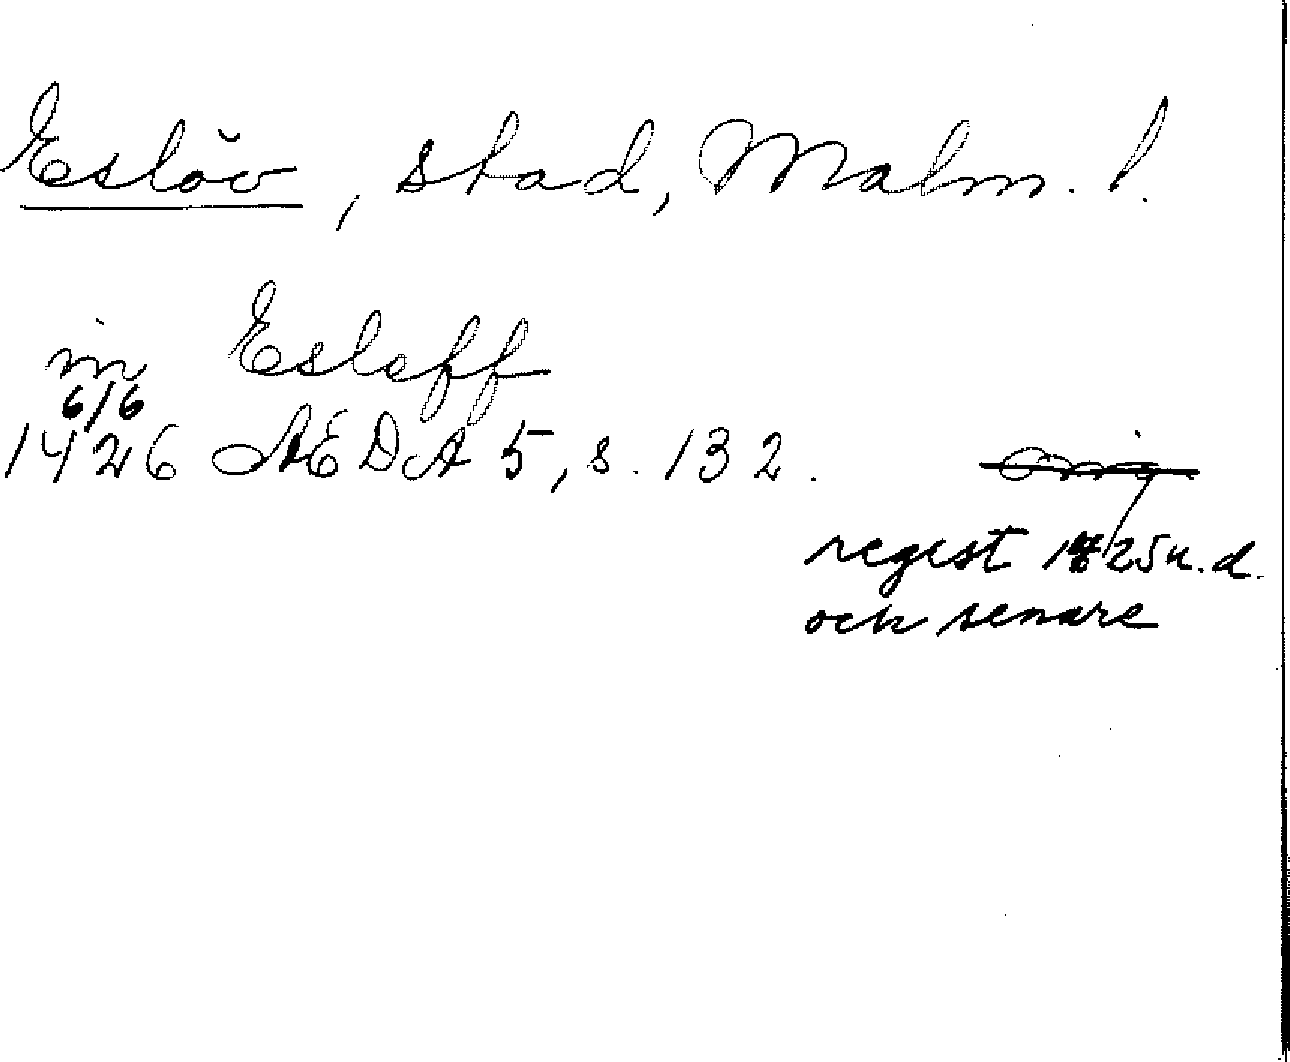 Eslöv, stad, Malm. l.
in Esleff
6/6
1426 ÆDA 5, s. 132.
regest 1425 u.d.
och senare